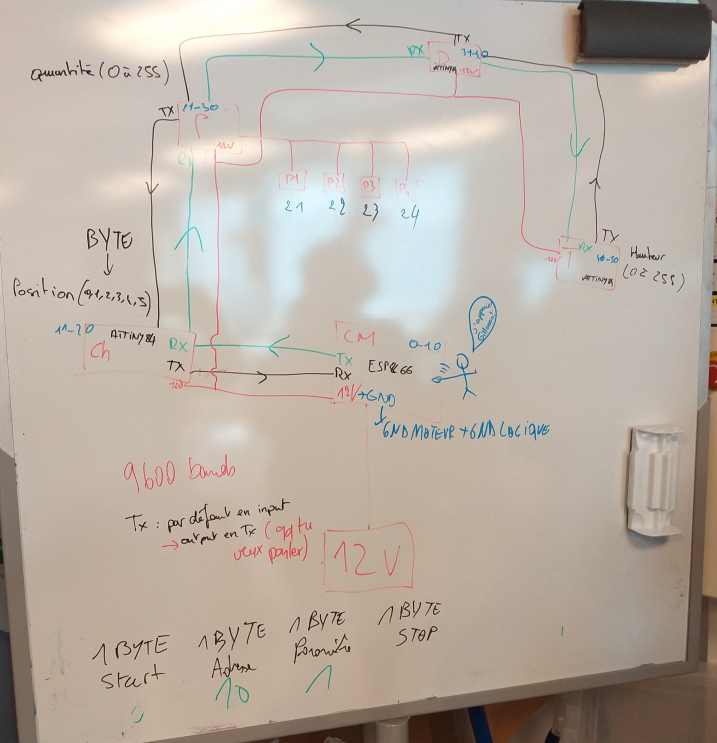 TX
Quantité (0 à 255)
RX
D
31-40
ATTINY84
12V
TX
11-30
12V
P1
P2
P3
21
22
23
24
TX
RX
40-50
ATTINY84
Hauteur
(0 à 255)
BYTE
Position (0,1,2,3,4,5)
11-20
ATTINY84
Ch
RX
TX
12V
CM
TX
RX
ESP8266
12V+GND
0-10
GND MOTEUR + GND LOGIQUE
9600 bauds
Tx : par défaut en input
→ output en Tx (qd tu
veux parler)
12V
1 BYTE
Start
1 BYTE
Adresse
10
1 BYTE
Paramètre
1
1 BYTE
STOP